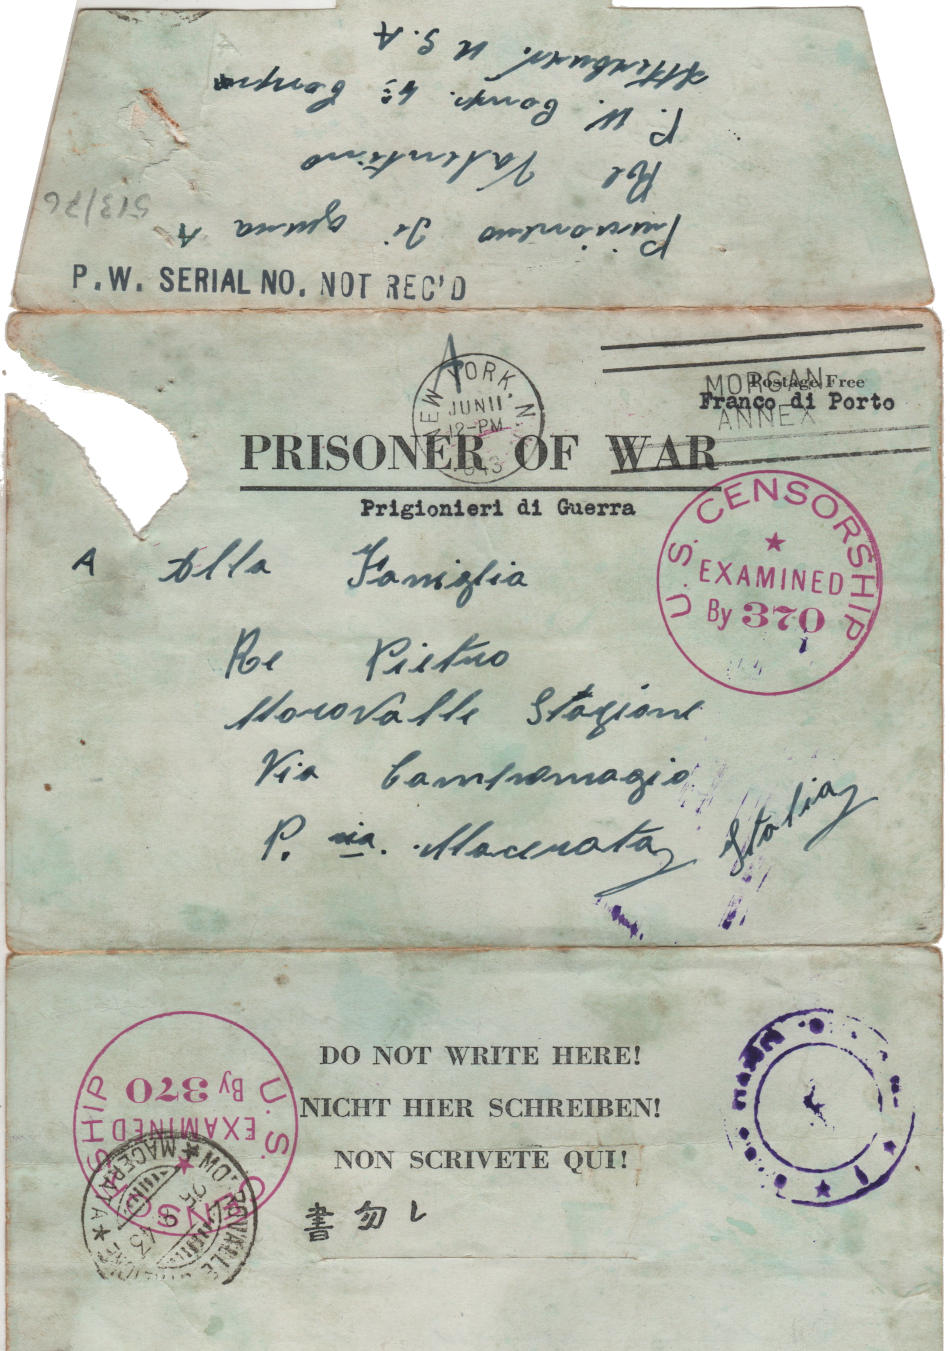 Prigioniero Di guerra A
Re Valentino
P. W. Comp. 4ª Compa
Atterbury. U. S. A
513/76
P.W. SERIAL NO. NOT REC'D
A
NEW YORK, N.
JUN 11
12-PM
1943
MORGAN
ANNEX
Postage Free
Franco di Porto
PRISONER OF WAR
Prigionieri di Guerra
U.S. CENSORSHIP
EXAMINED
By 370
A Alla Famiglia
Re Pietro
Morovalle Stazione
Via
P. cia. Macerata Italia
DO NOT WRITE HERE!
NICHT HIER SCHREIBEN!
NON SCRIVETE QUI!
書勿レ
U.S. CENSORSHIP
EXAMINED
By 370
MACERATA
25 9 43